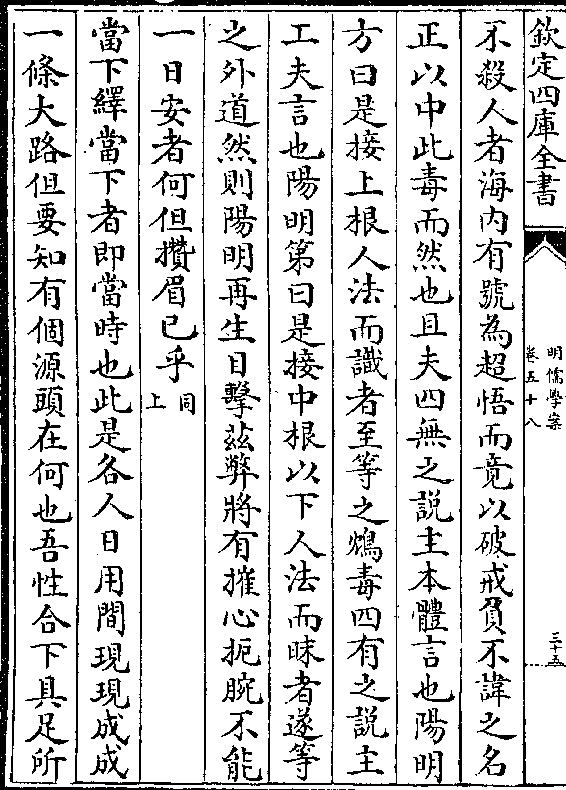 欽定四庫全書
明儒學案
卷五十八
三十五
不殺人者海内有號為超悟而竟以破戒負不諱之名
正以中此毒而然也且夫四無之說主本體言也陽明
方曰是接上根人法而識者至等之鴆毒四有之說主
工夫言也陽明第曰是接中根以下人法而昧者遂等
之外道然則陽明再生目擊茲弊將有摧心扼腕不能
一日安者何但攢眉已乎同上
當下繹當下者即當時也此是各人日用間現現成成
一條大路但要知有個源頭在何也吾性合下具足所